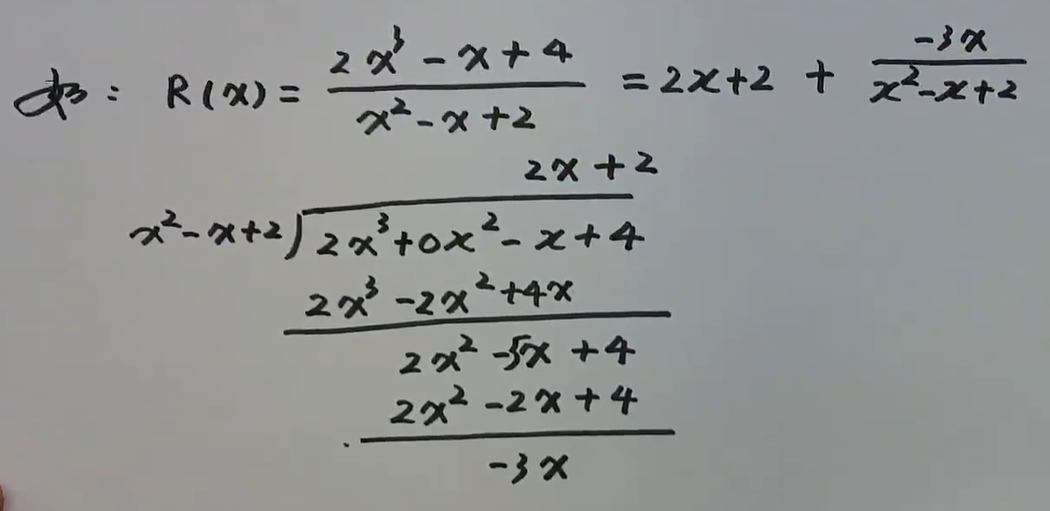 如: R(x) = (2x³ - x + 4)/(x² - x + 2) = 2x+2 + (-3x)/(x² - x + 2)
2x + 2
x² - x + 2 ) 2x³ + 0x² - x + 4
2x³ - 2x² + 4x
2x² - 5x + 4
2x² - 2x + 4
-3x